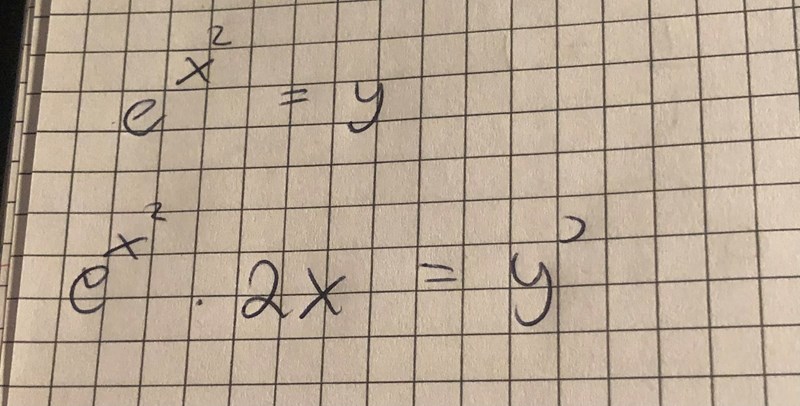 e^{x^2} = y
e^{x^2} · 2x = y'